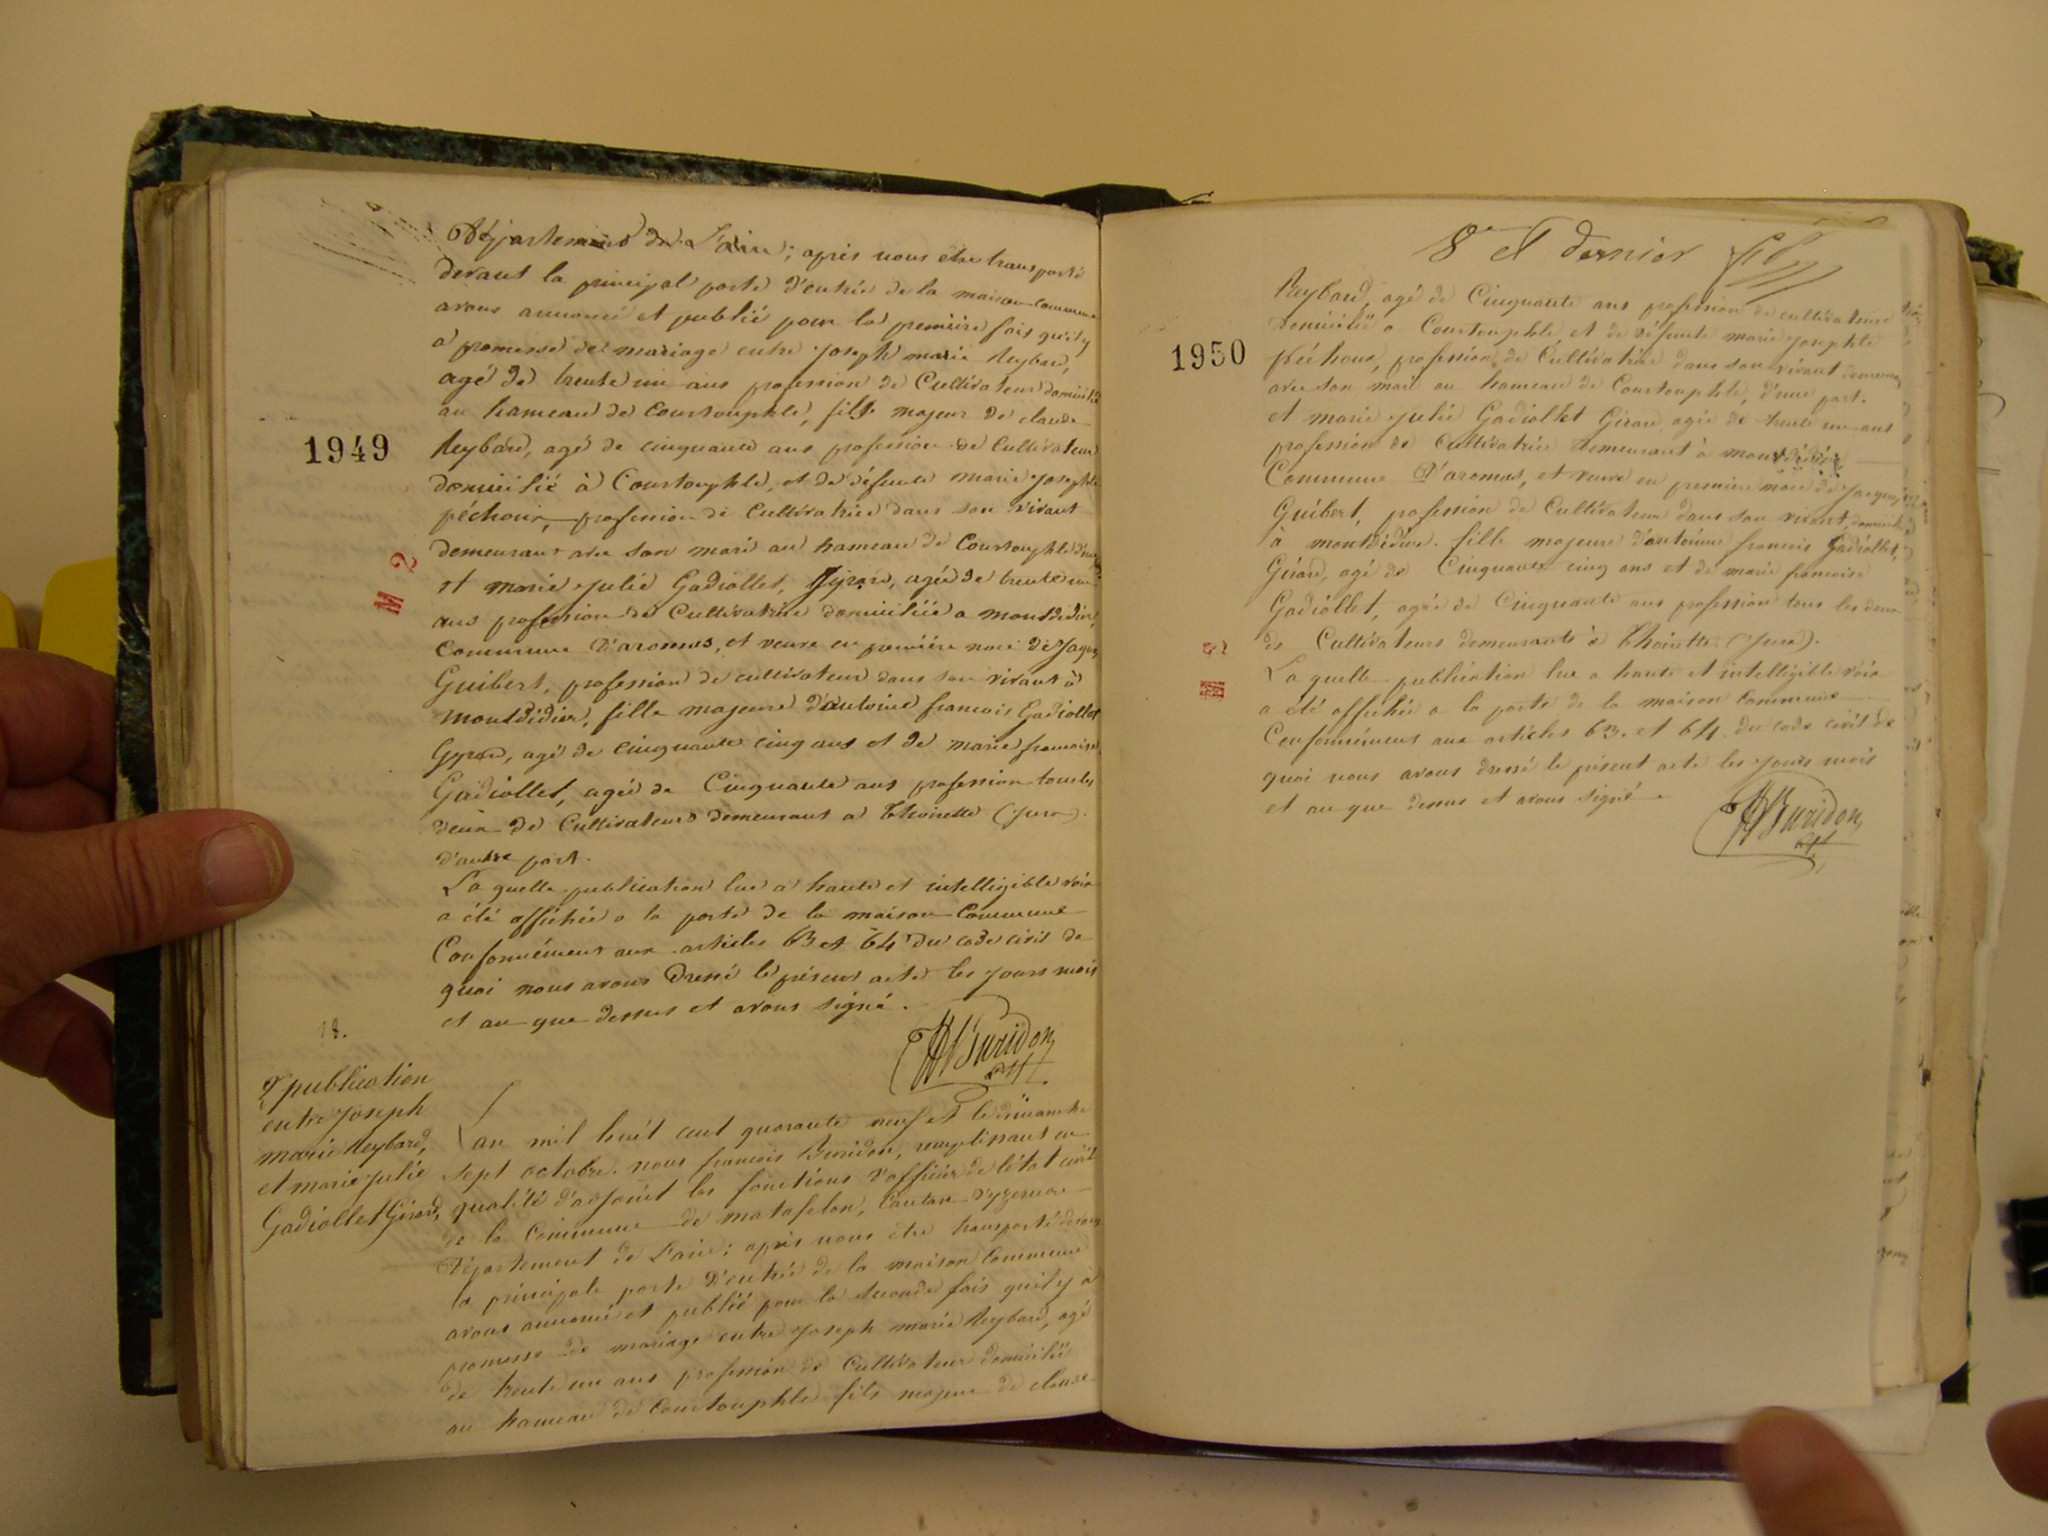 Département de L'ain; après nous être transporté
devant la principal porte d'entrée de la maison commune
avons annoncé et publié pour la première fois qu'il y
a promesse de mariage entre Joseph marie Reybard,
agé de trente un ans profession de Cultivateur domicilié
au hameau de Courtouphle, fils majeur de claude
1949
Reybard, agé de cinquante ans profession de Cultivateur
domicilié à Courtouphle, et de défunte marie Josephte
péchoux, profession de Cultivatrice dans son vivant
demeurant avec son mari au hameau de Courtouphle
M 2
et marie Julie Gadiollet, agée de trente un
ans profession de Cultivatrice domiciliée a montdidier,
Commune D'aromas, et veuve en première noce de Jaques
Guibert, profession de cultivateur dans son vivant à
montdidier, fille majeure d'antoine francois Gadiollet
agé de cinquante cinq ans et de marie francoise
Gadiollet, agée de Cinquante ans profession tous les
deux de Cultivateurs demeurant a Thoirette (Jura).
d'autre part.
La quelle publication lue a haute et intelligible voix
a été affichée a la porte de la maison Commune
Conformément aux articles 63 et 64 du code civil de
quoi nous avons Dressé le présent acte les jours mois
et an que dessus et avons signé.
Buridon
18.
2e publication
entre Joseph
marie Reybard,
et marie Julie
Gadiollet Girard,
L'an mil huit cent quarante neuf et le dimanche
sept octobre. nous francois Buridon, remplissant en
qualité d'adjoint les fonctions d'officier de l'état civil
de la Commune de matafelon, Canton d'yzernore
Département de L'ain; après nous être transporté devant
la principale porte D'entrée de la maison Commune
avons annoncé et publié pour la seconde fois qu'il y a
promesse de mariage entre Joseph marie Reybard, agé
de trente un ans profession de Cultivateur domicilié
au hameau de Courtouphle fils majeur de claude
8e et dernier
Reybard, agé de Cinquante ans profession de cultivateur
domicilié a Courtouphle et de défunte marie Josephte
1950
péchoux, profession de Cultivatrice dans son vivant demeurant
avec son mari au hameau de Courtouphle, d'une part.
et marie Julie Gadiollet Girard, agée de trente un ans
profession de Cultivatrice demeurant à montdidier
Commune D'aromas, et veuve en première noce de Jacques
Guibert, profession de Cultivateur dans son vivant, domicilié
a montdidier. fille majeure d'antoine francois Gadiollet,
Girard, agé de Cinquante cinq ans et de marie francoise
Gadiollet, agée de Cinquante ans profession tous les deux
de Cultivateurs demeurants à Thoirette (Jura).
La quelle publication lue a haute et intelligible voix
a été affichée a la porte de la maison Commune
Conformément aux articles 63. et 64. du code civil de
quoi nous avons dressé le présent acte les jours mois
et an que dessus et avons signé.
Buridon